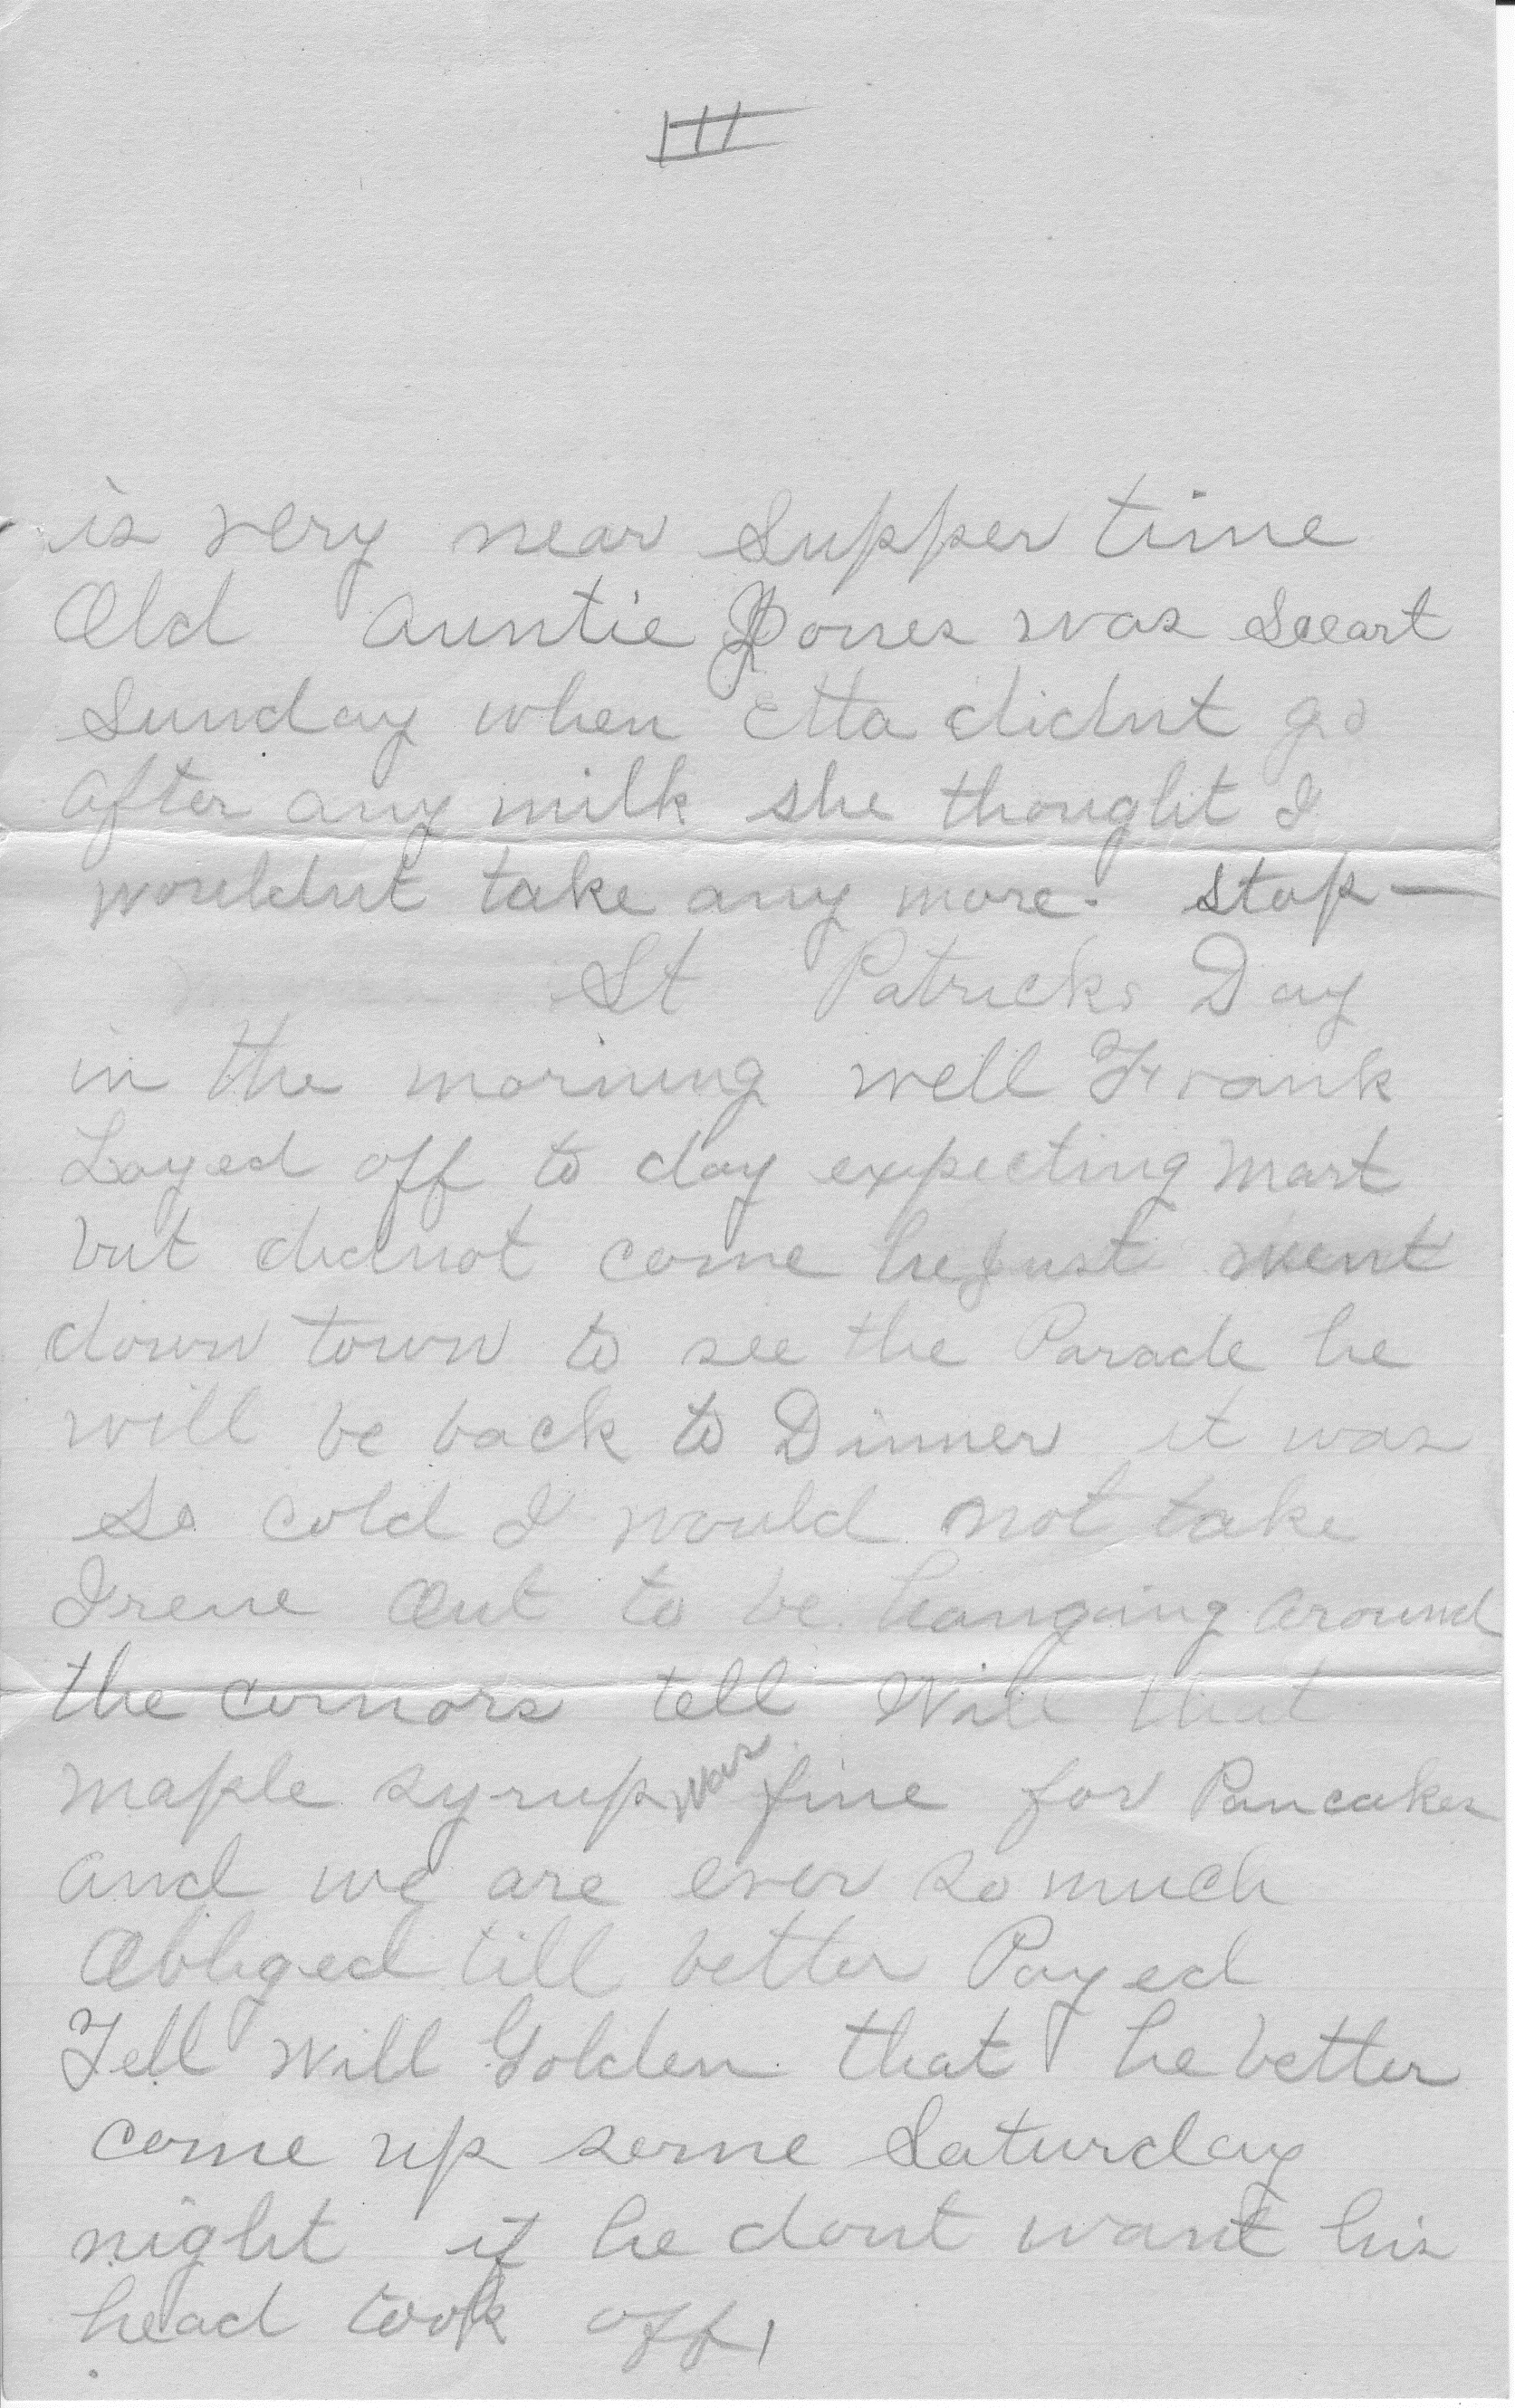 III
is very near Supper time
Old Auntie Jones was Sceart
Sunday when Etta didnt go
after any milk she thought I
wouldnt take any more. Stop—
St Patricks Day
in the morning well Frank
Layed off to day expecting Mart
but didnot come he just went
down town to see the Parade he
will be back to Dinner it was
So cold I would not take
Irene Out to be hanging around
the cornors tell Will that
maple syrup was fine for Pancakes
and we are ever so much
Obliged till better Payed
Tell Will Golden that he better
come up some Saturday
night if he dont want his
head took off,